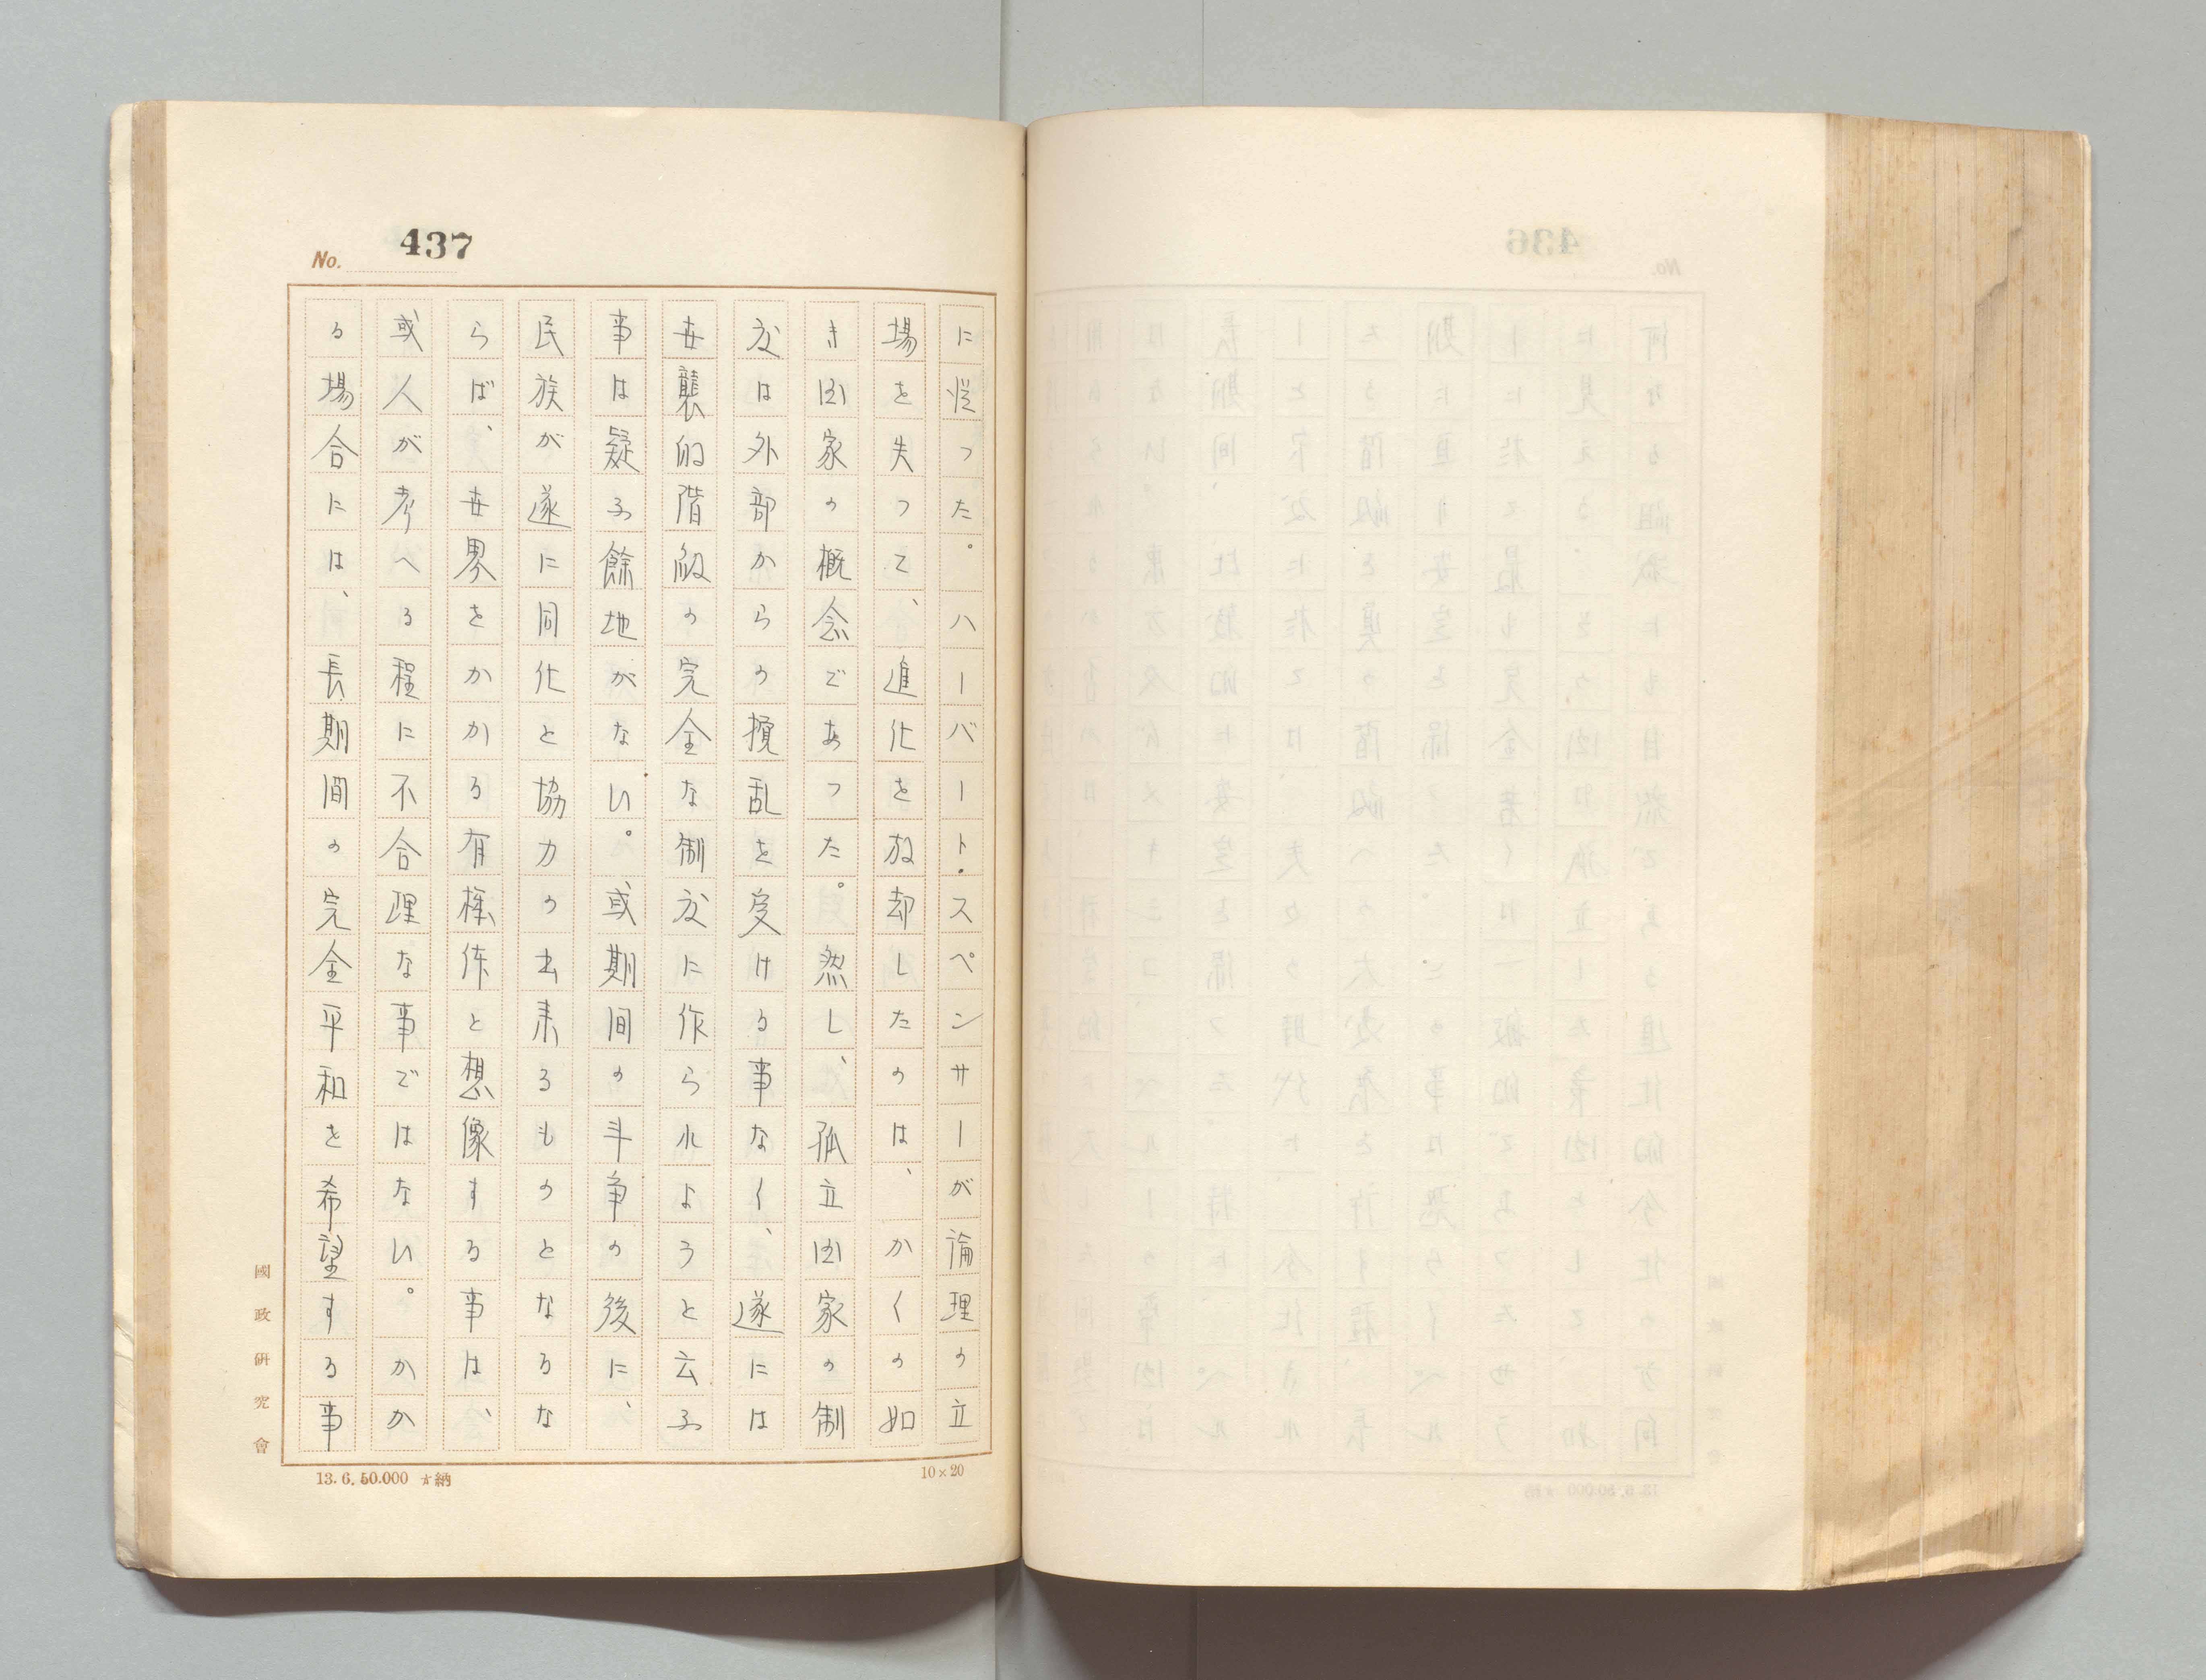 No. 437
に従った。ハーバート・スペンサーが論理の立
場を失って、進化を放却したのは、かくの如
き国家の概念であった。然し、孤立国家の制
度は外部からの攪乱を受ける事なく、遂には
世襲的階級の完全な制度に作られようと云ふ
事は疑ふ餘地がない。或期間の斗争の後に、
民族が遂に同化と協力の出来るものとなるな
らば、世界をかかる有様と想像する事は、
或人が考へる程に不合理な事ではない。かか
る場合には、長期間の完全平和を希望する事
國政研究會
13.6.50.000 ☆納
10×20